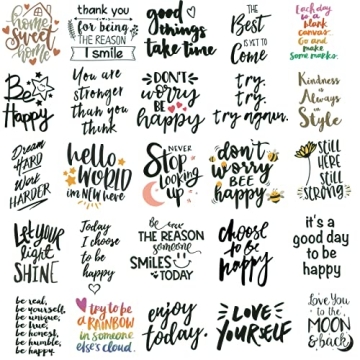 home
sweet
home
thank you
for being
THE REASON
I smile
good
things
take time
THE
Best
IS YET TO
Come
Each day
is a
blank
canvas.
Go and
make
Some marks.
Be
Happy
You are
stronger
than you
think
DON'T
worry
Be
happy
try.
try.
try again.
Kindness
is
Always
in
Style
Dream
HARD
Work
HARDER
hello
WORLD
im NEW here
NEVER
Stop
Looking
up
don't
worry
BEE
happy
STILL
HERE
STILL
STRONG
Let your
light
SHINE
Today
I choose
to be
happy
BE
THE REASON
someone
SMILES
TODAY
choose
to be
happy
it's a
good day
to be
happy
be real,
be yourself,
be unique,
be true,
be honest,
be humble,
be happy.
try to be
a RAINBOW
in someone
else's cloud.
enjoy
today.
LOVE
YOURSELF
Love You
to the
MOON
& back